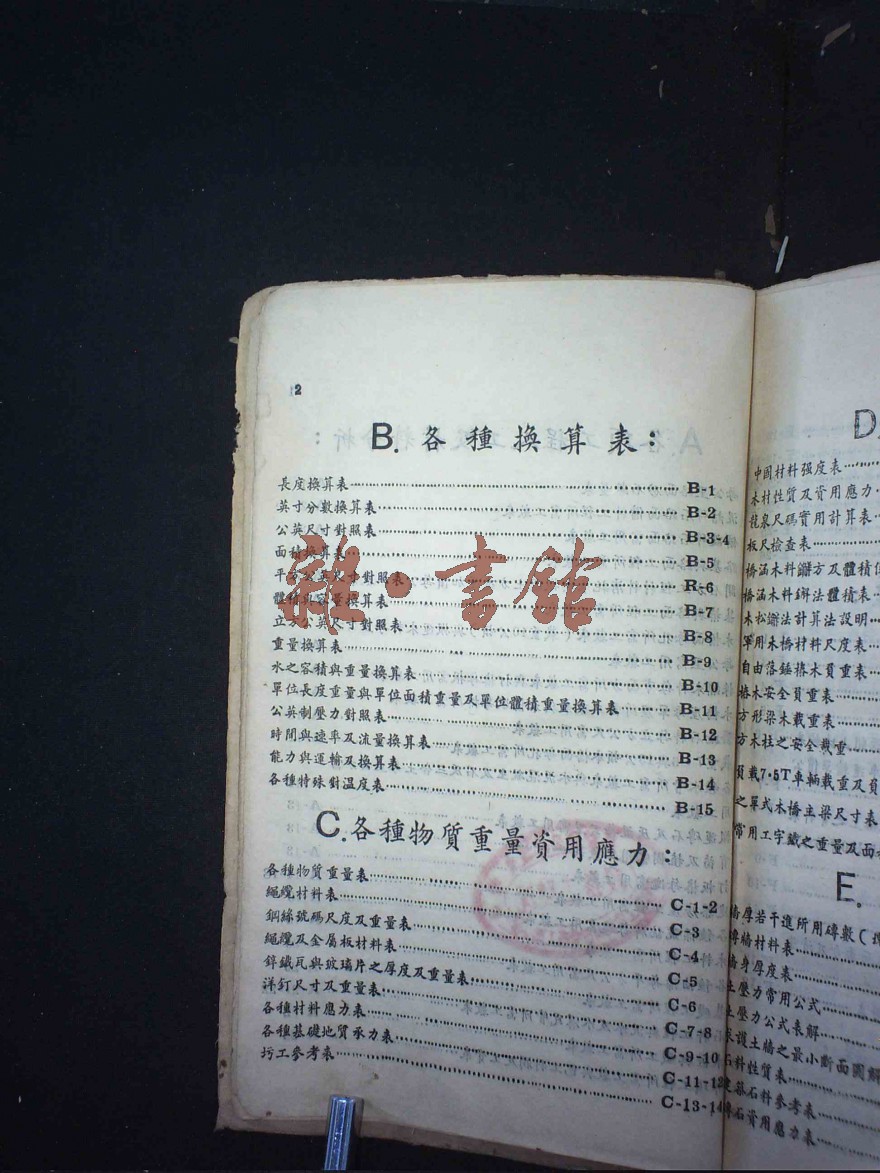 2
B. 各種換算表：
長度換算表 B-1
英寸分數換算表 B-2
公英尺寸對照表 B-3-4
面積換算表 B-5
平方公英尺寸對照表 R-6
體積與容量換算表 B-7
立方公英尺寸對照表 B-8
重量換算表 B-9
水之容積與重量換算表 B-10
單位長度重量與單位面積重量及單位體積重量換算表 B-11
公英制壓力對照表 B-12
時間與速率及流量換算表 B-13
能力與運輸及換算表 B-14
各種特殊對溫度表 B-15
C. 各種物質重量資用應力：
各種物質重量表 C-1-2
繩纜材料表 C-3
鋼絲號碼尺度及重量表 C-4
繩纜及金屬板材料表 C-5
鋅鐵瓦與玻璃片之厚度及重量表 C-6
洋釘尺寸及重量表 C-7-8
各種材料應力表 C-9-10
各種基礎地質承力表 C-11-12
圬工參考表 C-13-14
雜·書館
D.
中國材料强度表
木材性質及資用應力
龍泉尺碼實用計算表
板尺檢查表
橋涵木料
橋涵木料 法體積表
計算法説明
軍用木橋材料尺度表
自由落錘樁木負重表
樁木安全負重表
方形梁木載重表
方木柱之安全載重
負載7·5T車輛載重及
之單式木橋主梁尺寸表
常用工字鐵之重量及面
E.
牆厚若干進所用磚數(
磚牆材料表
牆身厚度表
土壓力常用公式
土壓力公式表解
護土牆之最小斷面圖解
石料性質表
石料參考表
石資用應力表